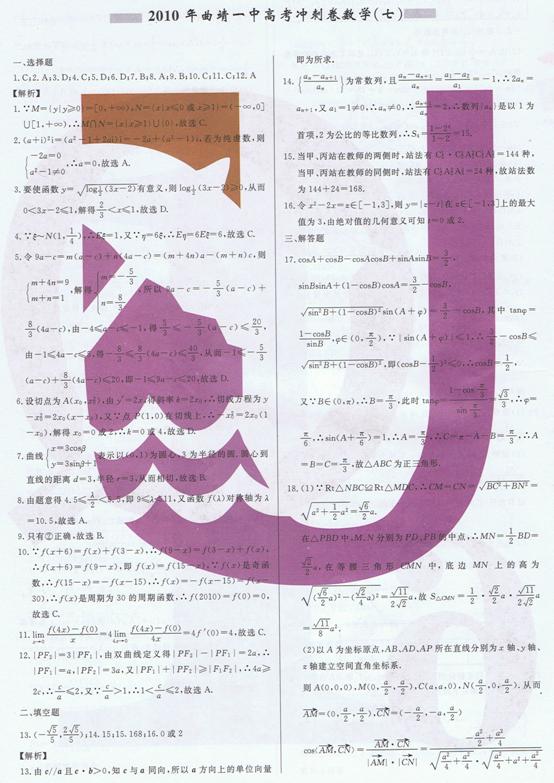 2010 年曲靖一中高考冲刺卷数学(七)
一、选择题
1.C;2.A;3.D;4.C;5.D;6.D;7.D;8.A;9.B;10.C;11.C;12.A
【解析】
1.∵M={y|y≥0}=[0,+∞),N={x|x≤0 或 x≥1}=(-∞,0]
∪[1,+∞),∴M∩N={x|x≥1}∪{0},故选 C.
2.(a+i)²i=(a²-1+2ai)i=-2a+(a²-1)i,若为纯虚数,则
{-2a=0
a²-1≠0 ,∴a=0,故选 A.
3.要使函数 y=√log½(3x-2)有意义,则 log½(3x-2)≥0,从而
0<3x-2≤1,解得2/3<x≤1,故选 D.
4.∵ξ~N(1,1/4),∴Eξ=1,又∵η=6ξ,∴Eη=6Eξ=6,故选 C.
5.令 9a-c=m(a-c)+n(4a-c)=(m+4n)a-(m+n)c,则
{m+4n=9
m+n=1 ,解得{m=-5/3
n=8/3 ,所以 9a-c=-5/3(a-c)+
8/3(4a-c),由-4≤a-c≤-1,得5/3≤-5/3(a-c)≤20/3,
由-1≤4a-c≤5,得-8/3≤8/3(4a-c)≤40/3,从而-1≤-5/3
(a-c)+8/3(4a-c)≤20,即-1≤9a-c≤20,故选 D.
6.设切点为 A(x₀,x₀²),由 y′=2x,得斜率 k=2x₀,∴切线方程为 y
-x₀²=2x₀(x-x₀),又∵点 P(1,0)在切线上,∴-x₀²=2x₀(1
-x₀),解得 x₀=0 或 2,∴k=0 或 4,故选 D.
7.曲线{x=3cosθ
y=3sinθ+1 表示以(0,1)为圆心,3 为半径的圆,圆心到
直线的距离 d=3,半径 r=3,从而相切,故选 B.
8.由题意得 4.5≤λ/2<5.5,即 9≤λ<11,又函数 f(λ)对称轴为 λ
=10.5,故选 A.
9.只有②正确,故选 B.
10.∵f(x+6)=f(x)+f(3-x),∴f(9-x)=f(3-x)+f(x),
∴f(x+6)=f(9-x),即 f(x)=f(15-x),∵f(x)是奇函
数,∴f(15-x)=-f(x-15),∴f(x)=-f(x-15)=f(x-
30),∴f(x)是周期为 30 的周期函数,∴f(2010)=f(0)=0,
故选 C.
11.lim x→0 f(4x)-f(0)/x=4lim 4x→0 f(4x)-f(0)/4x=4f′(0)=4,故选 C.
12.|PF₂|=3|PF₁|,由双曲线定义得|PF₂|-|PF₁|=2a,∴
|PF₁|=a,|PF₂|=3a,又|PF₁|+|PF₂|≥|F₁F₂|,∴4a≥
2c,∴c/a≤2,又∵c/a>1,∴1<c/a≤2,故选 A.
二、填空题
13.(-√5/5,2√5/5);14.15;15.168;16.0 或 2
【解析】
13.由 c//a 且 c·b>0,知 c 与 a 同向,所以 a 方向上的单位向量
即为所求.
14.{(aₙ-aₙ₊₁)/aₙ}为常数列,且(aₙ-aₙ₊₁)/aₙ=(a₁-a₂)/a₁=-1,∴2aₙ=
aₙ₊₁,又 a₁=1≠0,∴aₙ≠0,∴aₙ₊₁/aₙ=2,∴数列{aₙ}是以 1 为
首项,2 为公比的等比数列,∴S₄=(1-2⁴)/(1-2)=15.
15.当甲、丙站在教师的两侧时,站法有 =144 种,
当甲、丙站在教师的同侧时,站法有 =24 种,故站法数
为 144+24=168.
16.令 x²-2x=z∈[-1,3],则 y=|z-t|在 z∈[-1,3]上的最大
值为 3,由绝对值的几何意义可知 t=0 或 2.
三、解答题
17.cosA+cosB-cosAcosB+sinAsinB=3/2,
sinBsinA+(1-cosB)cosA=3/2-cosB,
√(sin²B+(1-cosB)²)sin(A+φ)=3/2-cosB,其中 tanφ=
(1-cosB)/sinB,φ∈(0,π/2),∵|sin(A+φ)|≤1,∴3/2-cosB≤
√(sin²B+(1-cosB)²),即(cosB-1/2)²≤0,∴cosB=1/2,
又∵B∈(0,π),∴B=π/3,此时 tanφ=(1-cosπ/3)/sinπ/3=√3/3,∴φ=
π/6,∴sin(A+π/6)=1,∴A=π/3,∴C=π-A-B=π/3,∴A
=B=C=π/3,故△ABC 为正三角形.
18.(1)∵Rt△NBC≌Rt△MDC,∴CM=CN=√(BC²+BN²)=
√(a²+1/2a²)=√6/2a.
在△PBD 中,M、N 分别为 PD、PB 的中点,∴MN=1/2BD=
√2/2a,在等腰三角形 CMN 中,底边 MN 上的高为
√((√6/2a)²-(√2/4a)²)=√11/2√2a,故 S△CMN=1/2·√2/2a·√11/2√2a
=√11/8a².
(2)以 A 为坐标原点,AB、AD、AP 所在直线分别为 x 轴、y 轴、
z 轴建立空间直角坐标系.
则 A(0,0,0),M(0,a/2,a/2),C(a,a,0),N(a/2,0,a/2).从而
AM=(0,a/2,a/2),CN=(-a/2,-a,a/2)
cos⟨AM,CN⟩=AM·CN/|AM|·|CN|=(-a²/2+a²/4)/(√(a²/4+a²/4)·√(a²/4+a²+a²/4))